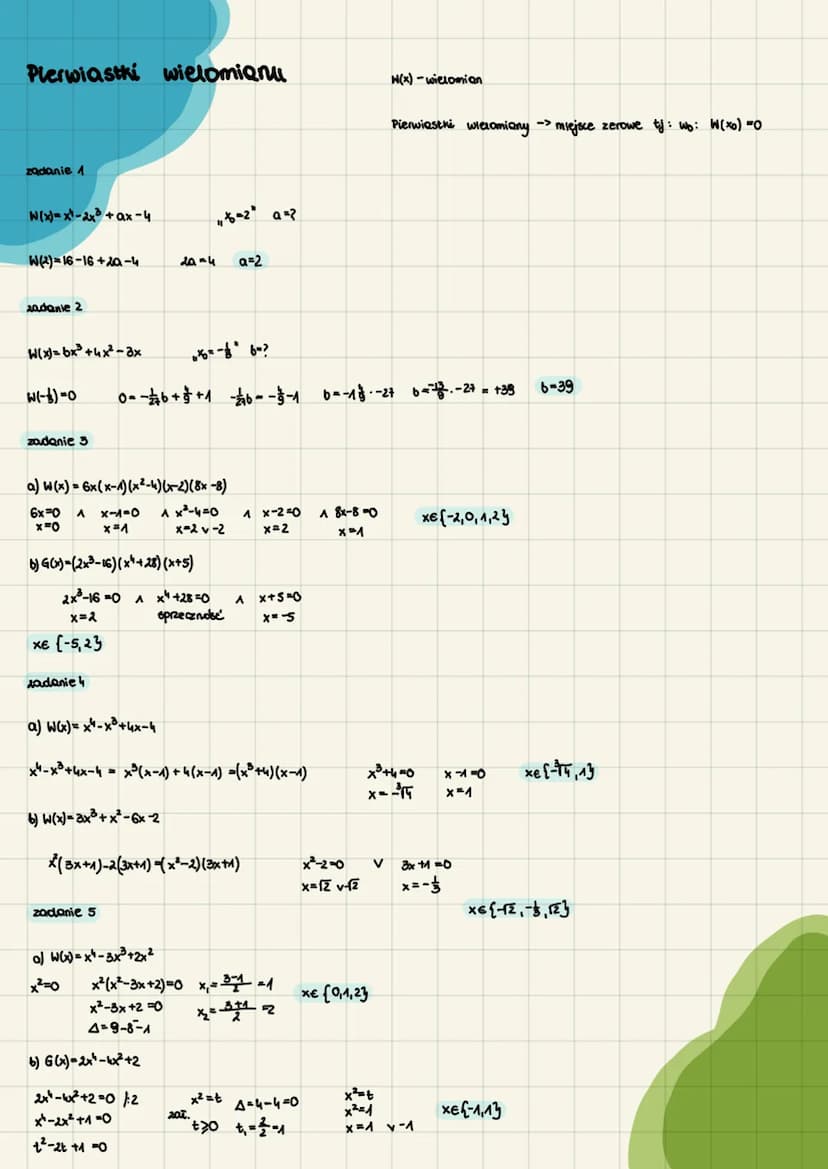 Pierwiastki wielomianu
W(x) - wielomian
Pierwiastki wielomianu -> miejsce zerowe tj: w₀: W(x₀)=0
zadanie 1
W(x)= x⁴-2x³+ax-4 „x₀=2" a=?
W(2)=16-16+2a-4 2a=4 a=2
zadanie 2
W(x)= bx³+4x²-3x „x₀=-⅓" b=?
W(-⅓)=0 0=-1/27b+4/9+1 -1/27b=-4/9-1 b=-1 4/9·-27 b=-13/9·-27 = +39 b=39
zadanie 3
a) W(x) = 6x(x-1)(x²-4)(x-2)(8x-8)
6x=0 ∧ x-1=0 ∧ x²-4=0 ∧ x-2=0 ∧ 8x-8=0 x∈{-2,0,1,2}
x=0 x=1 x=2 v -2 x=2 x=1
b) G(x)=(2x³-16)(x⁴+28)(x+5)
2x³-16=0 ∧ x⁴+28=0 ∧ x+5=0
x=2 sprzeczność x=-5
x∈ {-5,2}
zadanie 4
a) W(x)= x⁴-x³+4x-4
x⁴-x³+4x-4 = x³(x-1)+4(x-1) =(x³+4)(x-1) x³+4=0 x-1=0 x∈{-∛4,1}
x=-∛4 x=1
b) W(x)=3x³+x²-6x-2
x²(3x+1)-2(3x+1)=(x²-2)(3x+1) x²-2=0 v 3x+1=0
x=√2 v-√2 x=-⅓
x∈{-√2,-⅓,√2}
zadanie 5
a) W(x)=x⁴-3x³+2x²
x²=0 x²(x²-3x+2)=0 x₁=(3-1)/2=1 x∈{0,1,2}
x²-3x+2=0 x₂=(3+1)/2=2
Δ=9-8=1
b) G(x)=2x⁴-4x²+2
2x⁴-4x²+2=0 /:2 x²=t Δ=4-4=0 x²=t x∈{-1,1}
x⁴-2x²+1=0 zał. t⩾0 t₁=2/2=1 x²=1
t²-2t+1=0 x=1 v -1